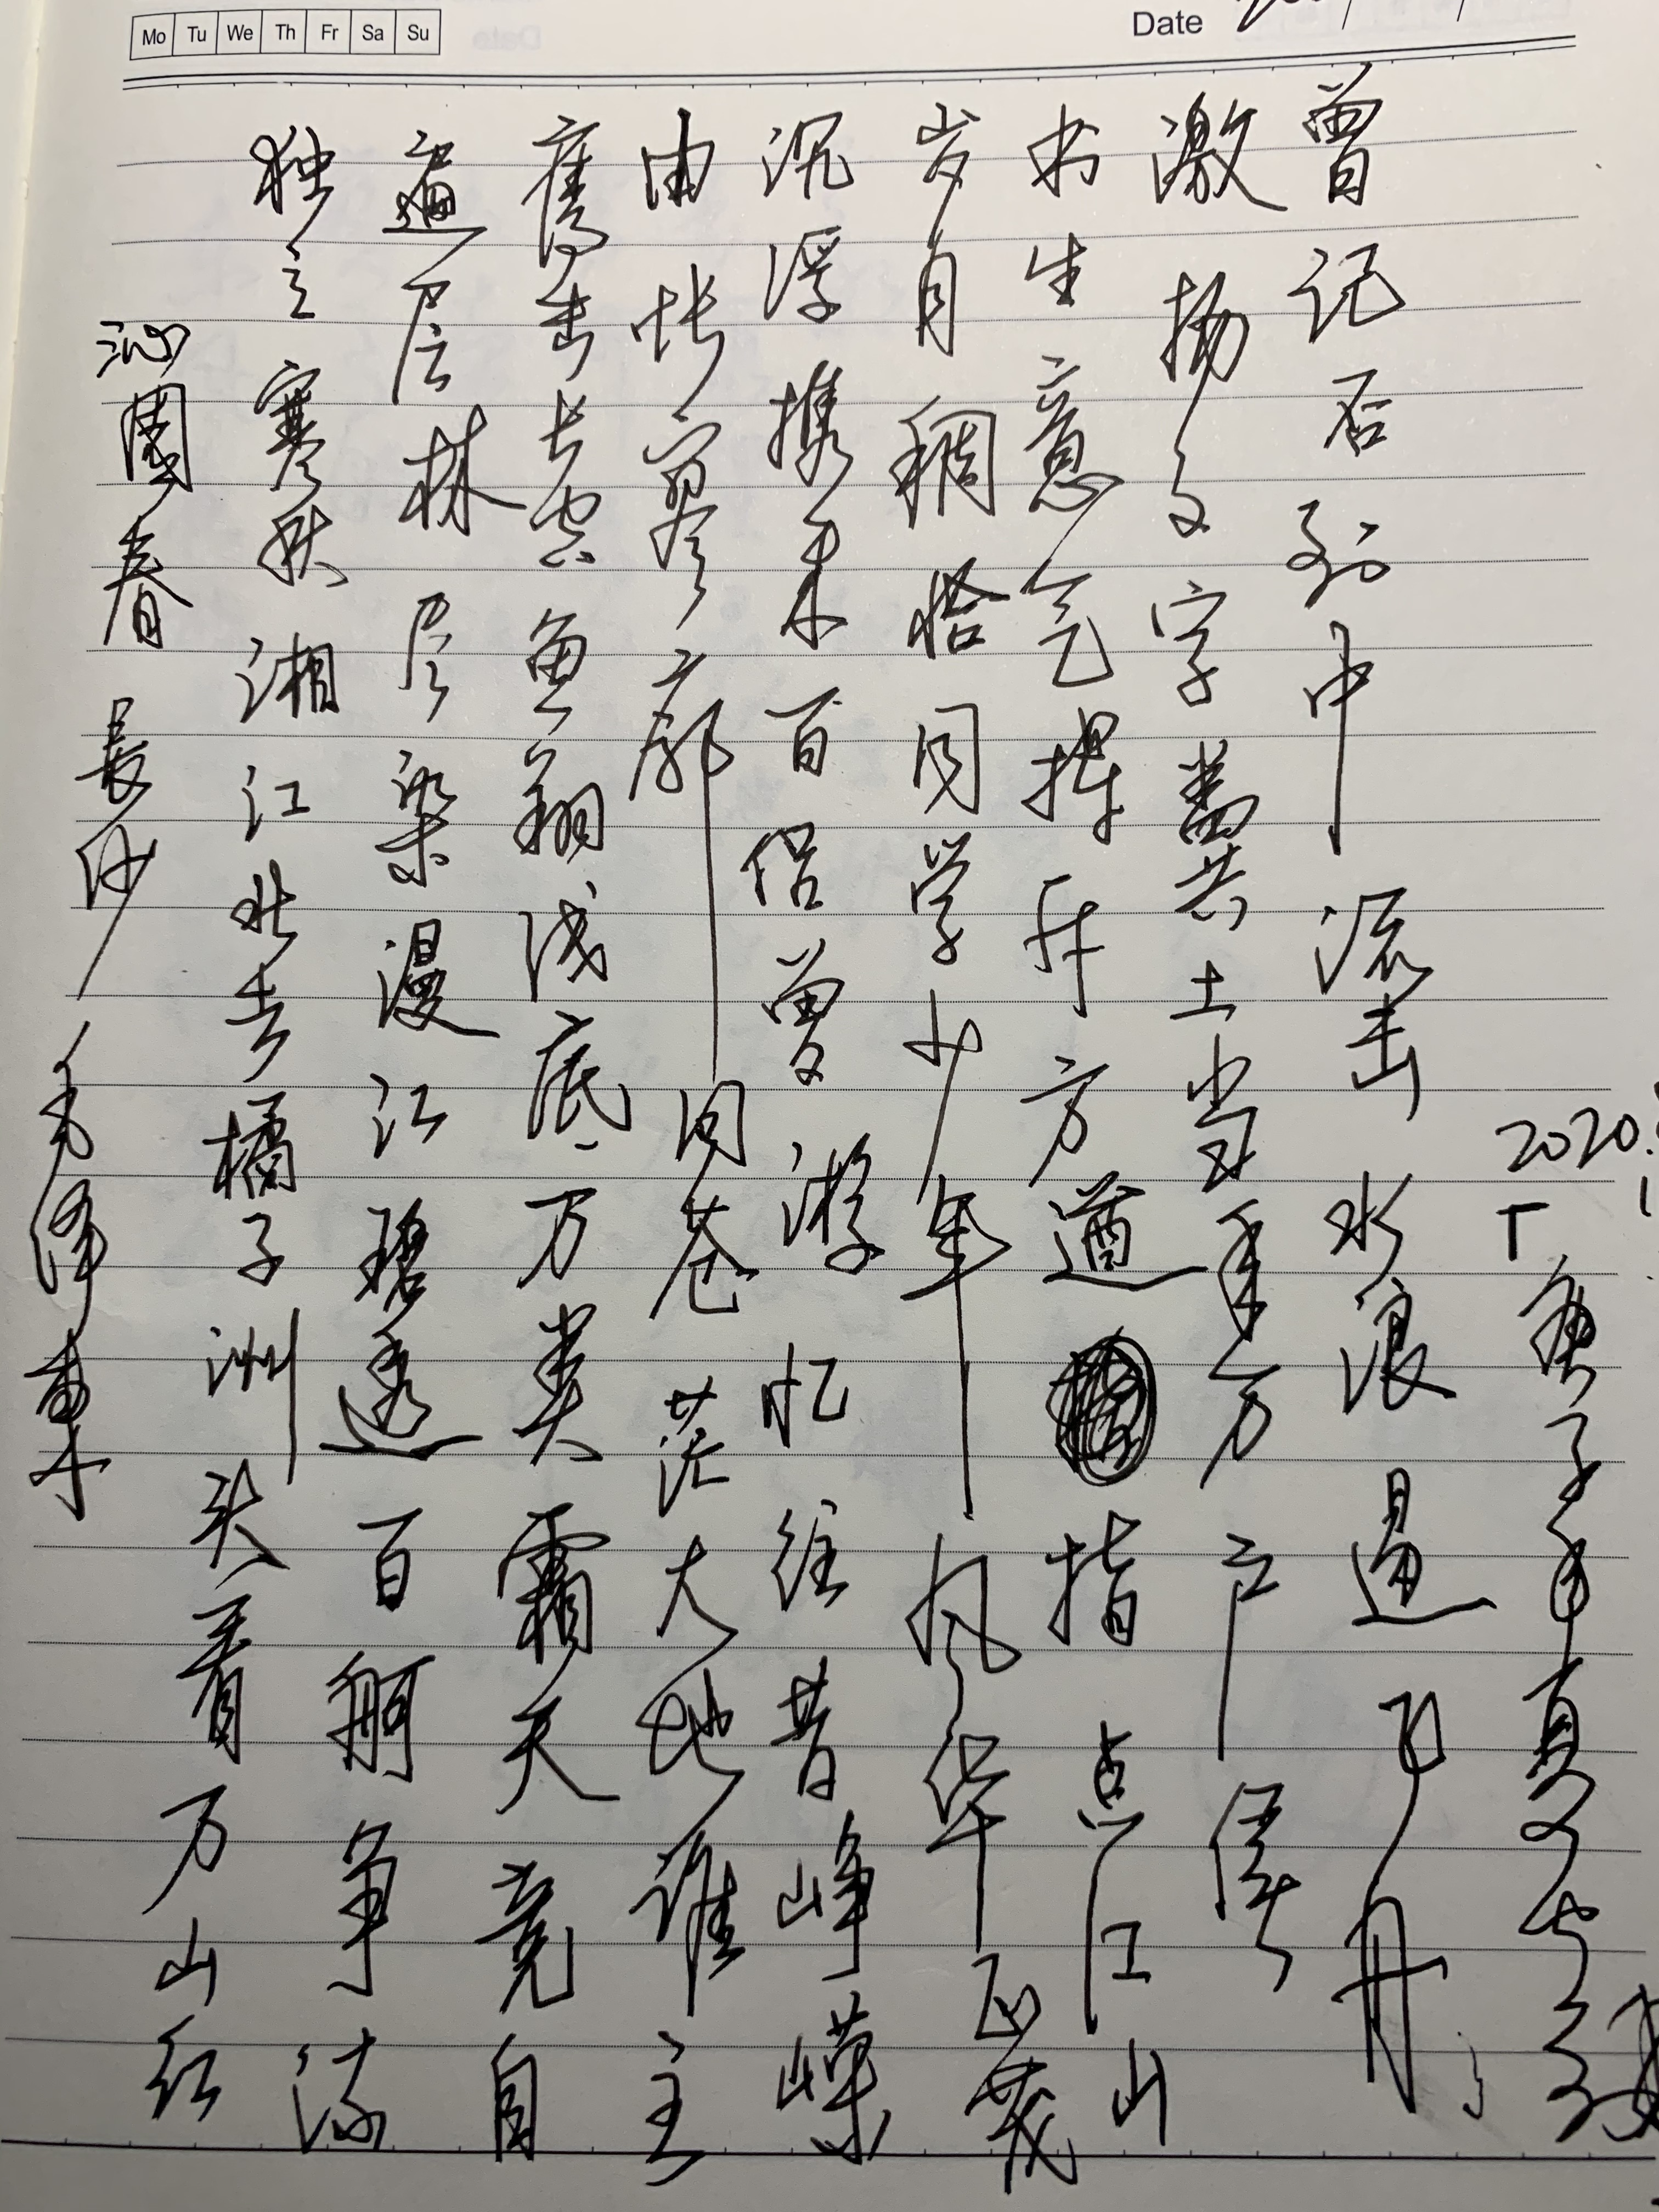 Mo Tu We Th Fr Sa Su
Date
沁園春 長沙 毛泽東
独立寒秋湘江北去橘子洲头看万山红
遍层林尽染漫江碧透百舸争流
鹰击长空鱼翔浅底万类霜天竞自
由怅寥廓问苍茫大地谁主
沉浮携来百侣曾游忆往昔峥嵘
岁月稠恰同学少年风华正茂
书生意气挥斥方遒指点江山
激扬文字粪土当年万户侯
曾记否到中流击水浪遏飞舟
2020.
庚子年夏